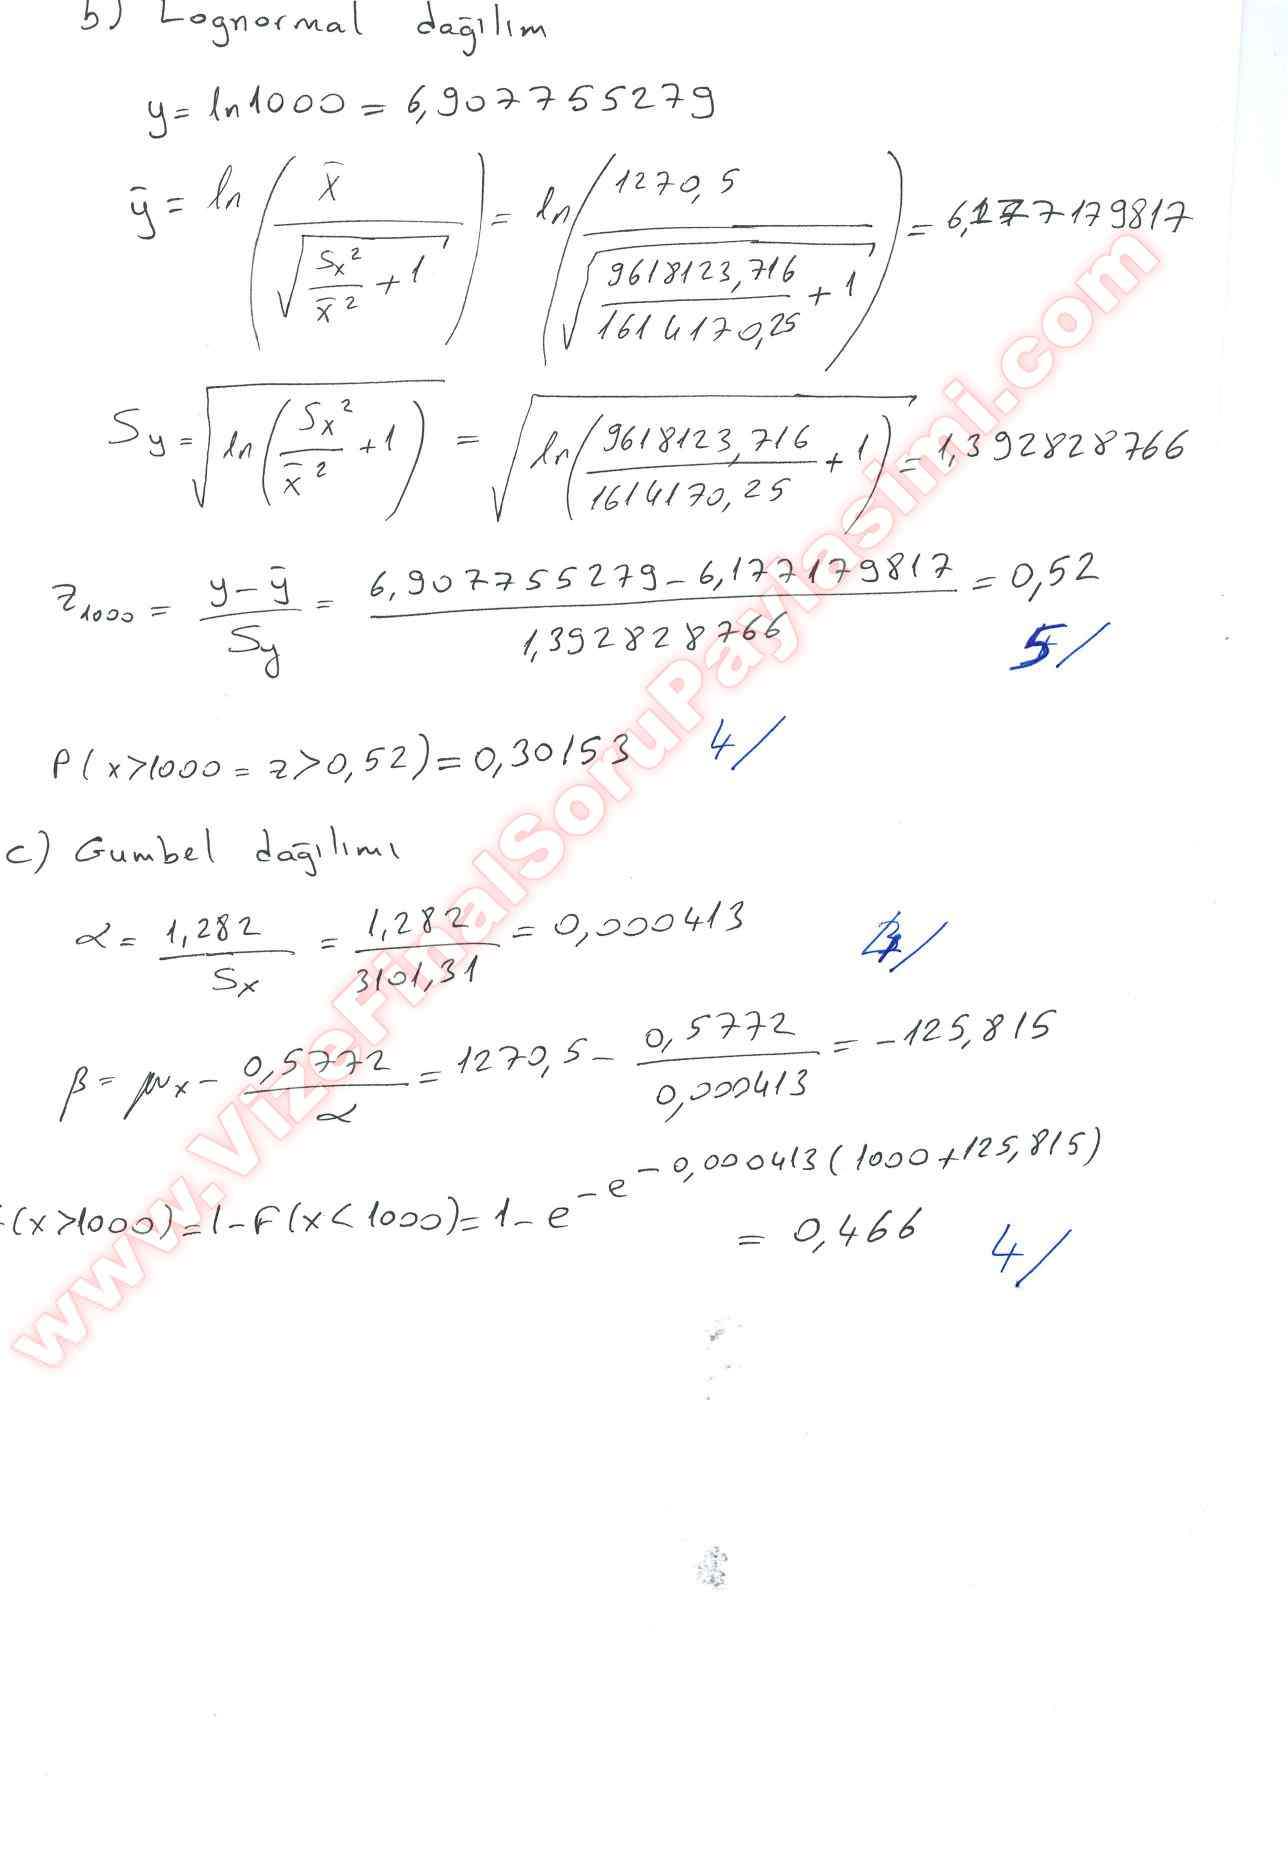 b) Lognormal dağılım
y = ln1000 = 6,907755279
ȳ = ln( x̄ / √(Sx² / x̄² + 1) ) = ln( 1270,5 / √(9618123,716 / 1614170,25 + 1) ) = 6,177179817
Sy = √(ln(Sx² / x̄² + 1)) = √(ln(9618123,716 / 1614170,25 + 1)) = 1,392828766
z₁₀₀₀ = (y - ȳ) / Sy = (6,907755279 - 6,177179817) / 1,392828766 = 0,52
5/
P(x>1000 = z>0,52) = 0,30153 4/
c) Gumbel dağılımı
α = 1,282 / Sx = 1,282 / 3101,31 = 0,000413
β = μx - 0,5772 / α = 1270,5 - 0,5772 / 0,000413 = -125,815
(x>1000) = 1 - F(x<1000) = 1 - e^(-e^(-0,000413(1000+125,815)))
= 0,466 4/
www.VizeFinalSoruPaylasimi.com